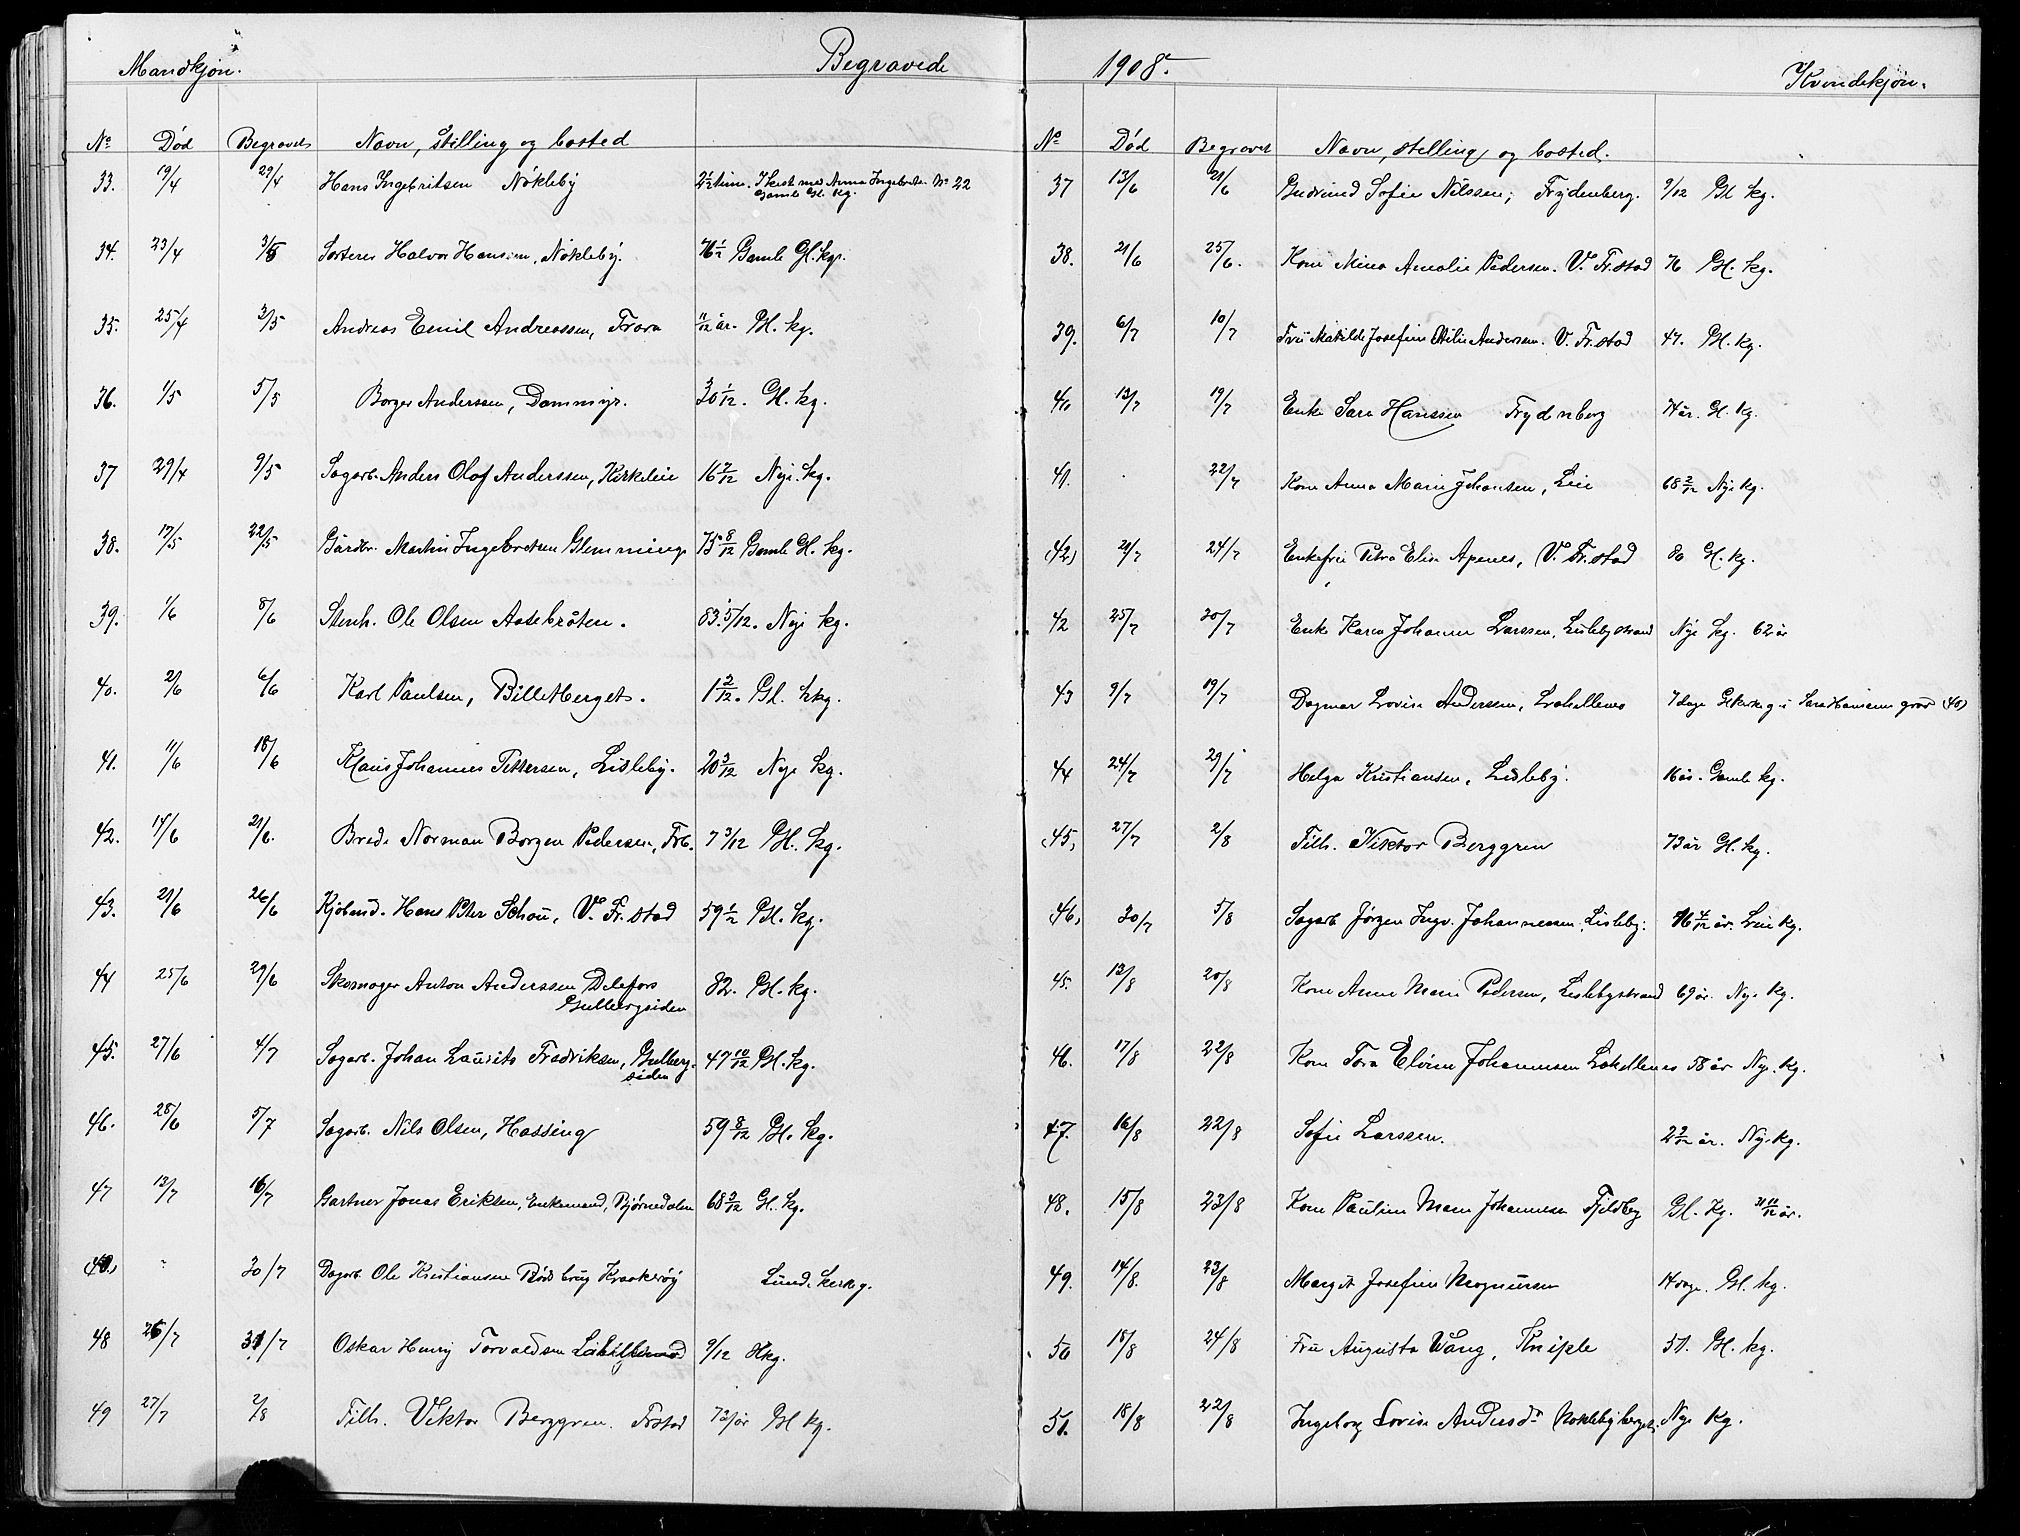 Mandkjøn.
Begravede
No Død Begravet Navn, stilling og bosted
33. 19/4 29/4 Hans Ingebritsen Nökleby 2½ time. I kiste med Anna Ingebrets. No 22
Gamle Gl. kg.
34. 23/4 3/5 Sorterer Halvor Hansen, Nökleby. 76½ Gamle Gl. kg.
35. 25/4 3/5 Andreas Emil Andreassen, Trara 11/12 år. Gl. kg.
36. 1/5 5/5 Borger Anderssen, Dammyr. 30 1/12. Gl. kg.
37 29/4 9/5 Sagarb. Anders Olaf Anderssen, Kirkeleie 16 7/12 Nye kg.
38. 17/5 22/5 Gårdbr. Martin Ingebretsen Glemminge 75 8/12 Gamle Gl. kg.
39. 1/6 8/6 Stenh. Ole Olsen Aasebråten. 83. 5/12. Nye kg.
40. 2/6 6/6 Karl Paulsen, Billetberget. 1 2/12. Gl. kg.
41. 11/6 18/6 Klaus Johannes Pettersen, Lisleby. 20 3/12 Nye kg.
42. 14/6 21/6. Brede Norman Borgen Pedersen, Frb. 7 3/12 Gl. kg.
43. 21/6 26/6 Kjöbmd. Hans Peter Schou, V. Fr.stad 59½ Gl. kg.
44 25/6 29/6 Skomager Anton Anderssen Delefors 82. Gl. kg.
Gulbergsiden
45. 27/6 4/7 Sagarb. Johan Laurits Fredriksen, Gulberg- 47 10/12 Gl. kg.
siden
46. 28/6 5/7 Sagarb. Nils Olsen, Hassing 59 8/12 Gl. kg.
47 13/7 16/7 Gartner Jonas Eriksen, Enkemand, Bjørnedalen 68 3/12 Gl. kg.
30/7 Dagarb. Ole Kristiansen Röds brug Kraakeröy Lunde kirkeg.
48 26/7 31/7 Oskar Henry Torvaldsen 9/12 Gl kg.
49 27/7 2/8 Tilh. Viktor Berggren. Frstad 73 år Gl kg.
1908.
Kvindekjøn.
No Død Begravet Navn, stilling og bosted.
37 13/6 21/6 Gudrund Sofie Nilssen, Frydenberg. 9/12 Gl kg.
38. 21/6 25/6. Kone Mina Amalie Pedersen. V. Fr.stad 76 Gl. kg.
39. 6/7 10/7 Fru Matilde Josefine Andersen. V. Fr.stad 47. Gl. kg.
40 13/7 19/7 Enke Sara Hanssen Frydenberg 74 år. Gl. kg.
41. 22/7 Kone Anna Marie Johansen, Leie 68 2/12 Nye kg.
(42) 21/7 24/7 Enkefru Petra Elise Apenes, V. Fr.stad 80 Gl. kg.
42 25/7 30/7 Enke Karen Johanne Larssen, Lislebystrand Nye kg. 62 år
43 9/7 19/7 Dagmar Lovise Anderssen, Lahellenes 7 dage Gl kirkeg i Sara Hansens grav (40)
44 24/7 29/7 Helga Kristiansen, Lisleby. 16 år. Gamle kg.
(45) 27/7 2/8 Tilh. Viktor Berggren 73 år Gl. kg.
(46) 30/7 5/8 Sagarb Jörgen Ingv. Johannessen Lisleby. 16 4/12 år. Leie kg.
45. 13/8 20/8 Kone Anne Marie Pedersen, Lislebystrand 69 år. Nye kg.
46. 17/8 22/8 Kone Tora Elvine Johannesen Lahellenes 58 år Nye. kg.
47. 16/8 22/8 Sofie Larssen. 2 2/12 år. Nye kg.
48. 15/8 23/8 Kone Pauline Marie Johannesen Fjeldberg Gl. Kg. 31 10/12 år.
49. 14/8. 23/8 Margit Josefine Magnussen 14 dage. Gl. kg.
50 18/8 24/8 Fru Augusta Wang, Kniple 51. Gl. kg.
51. 18/8 22/8 Ingeborg Lovise Andersdr. Nöklebyberget. Nye kg.